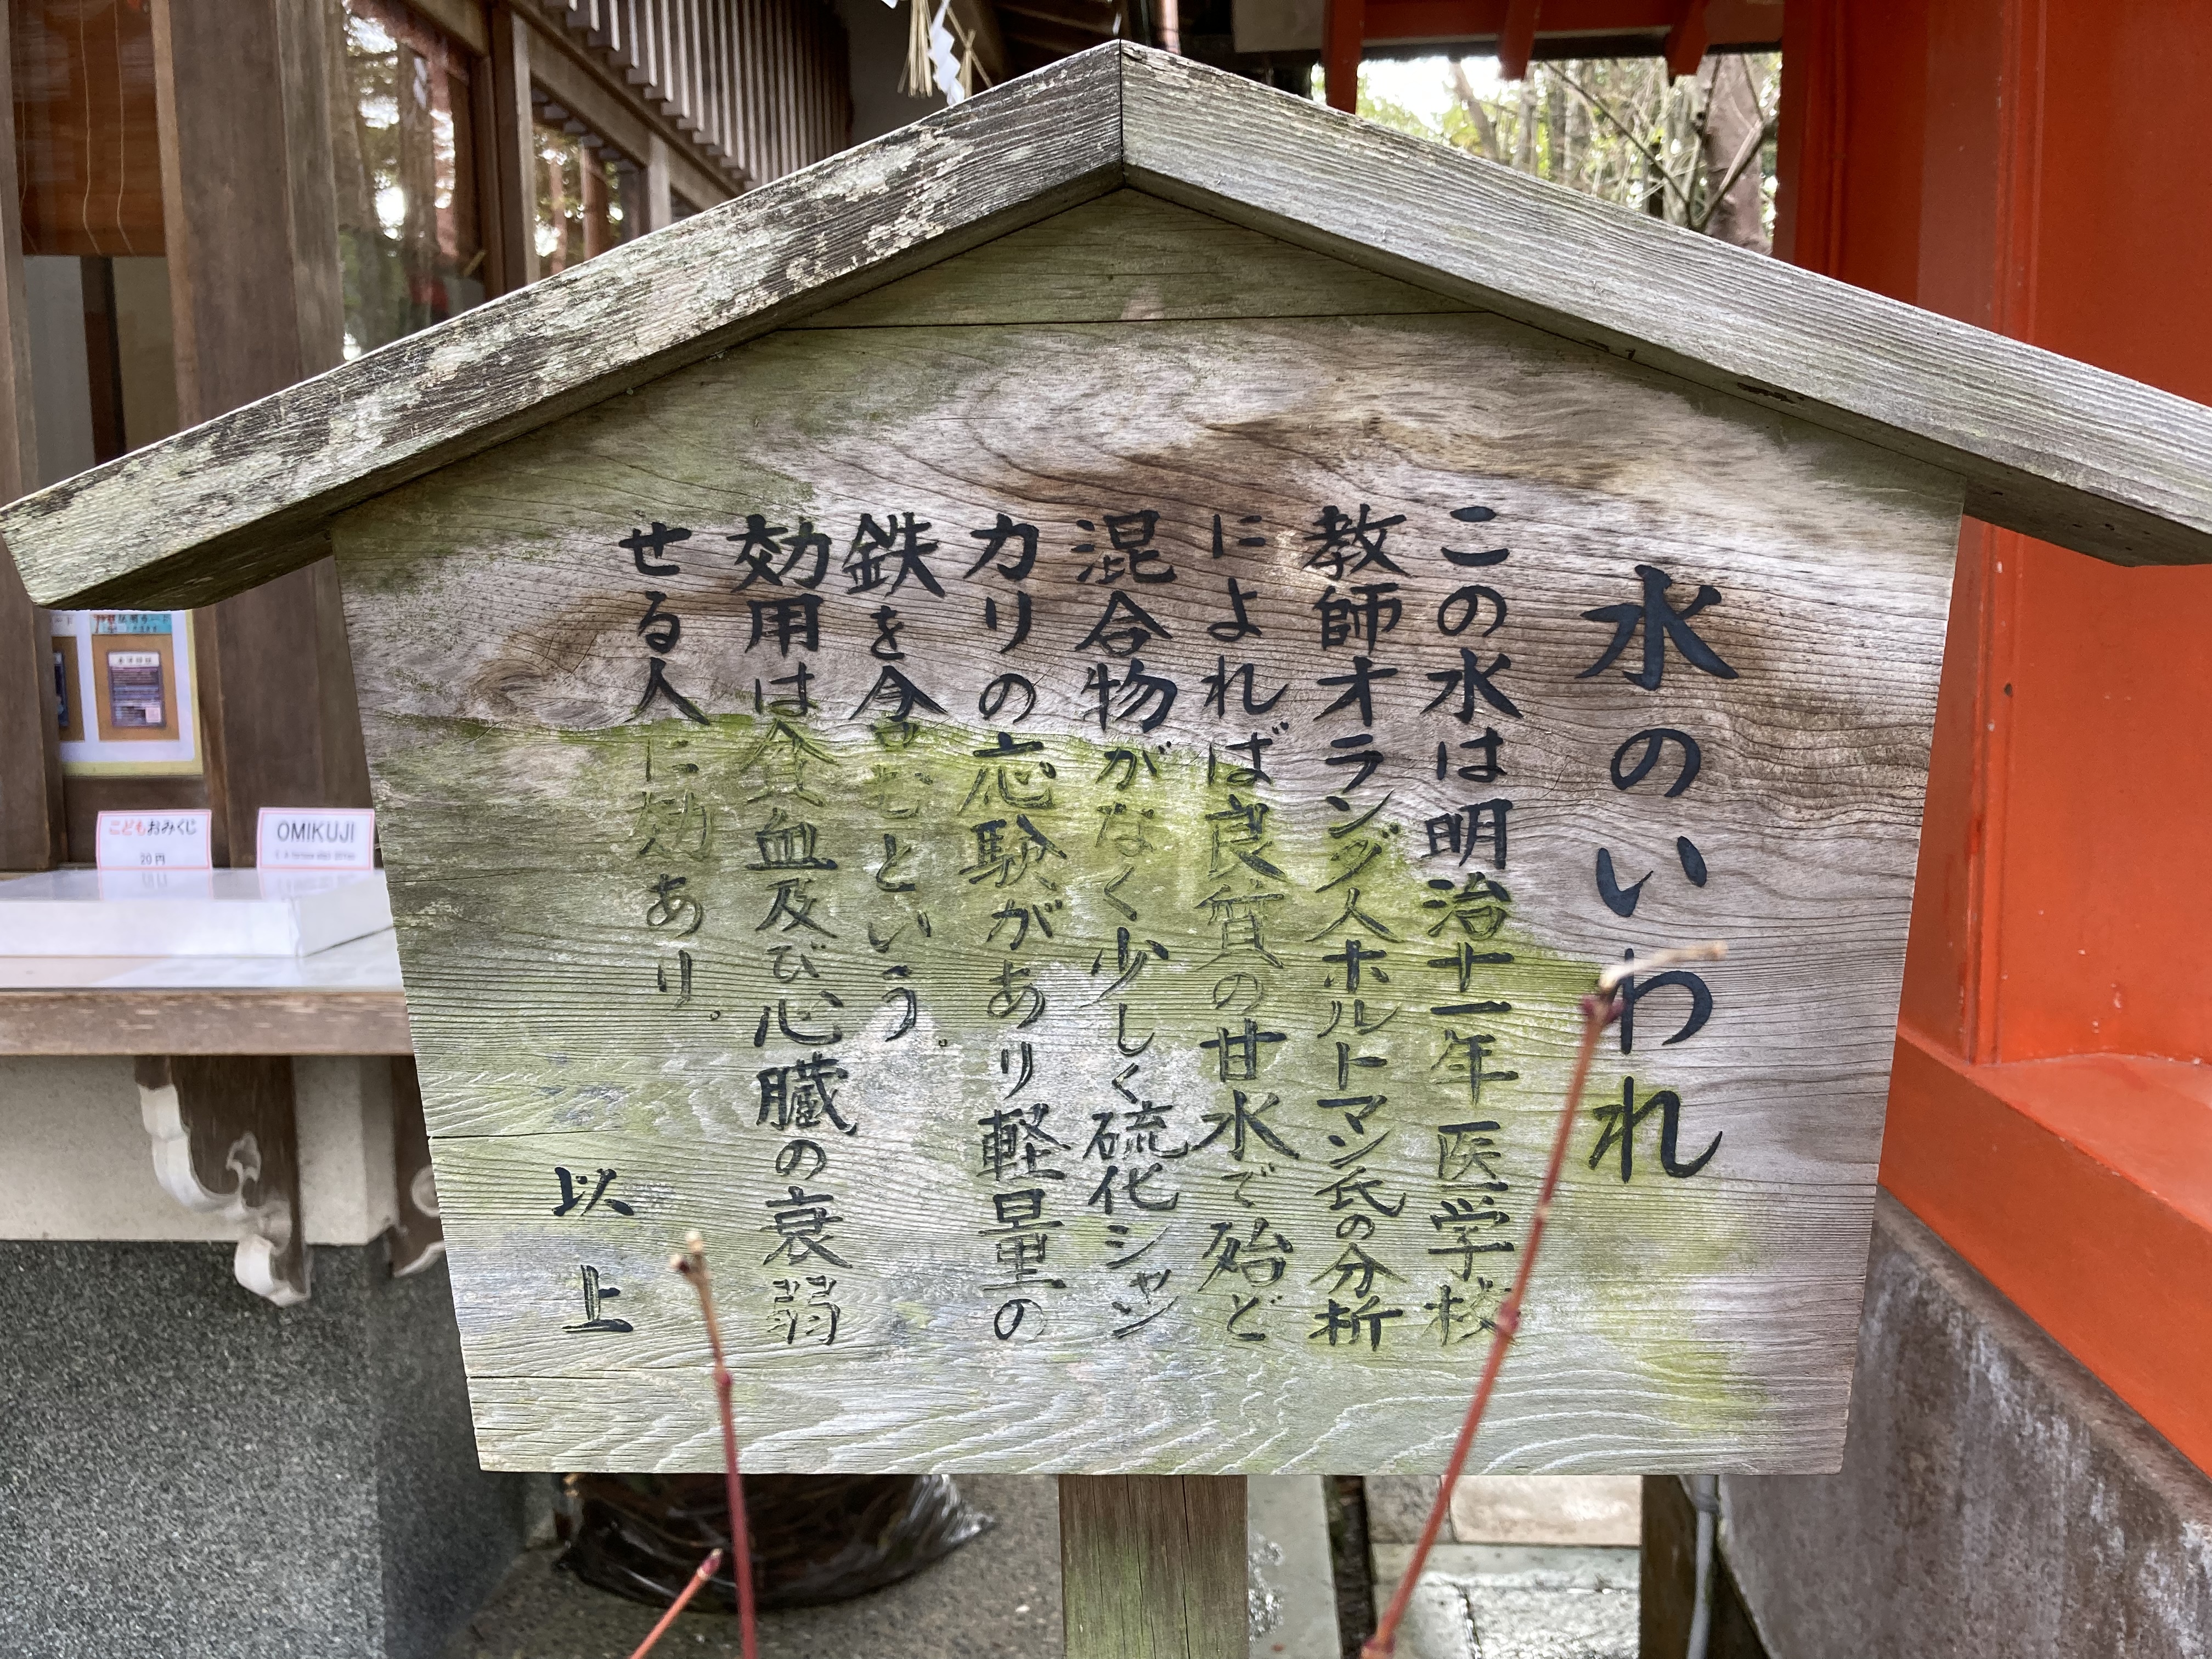 水のいわれ
この水は明治十一年医学校
教師オランダ人ホルトマン氏の分析
によれば良質の甘水で殆ど
混合物がなく少しく硫化シヤン
カリの応験があり軽量の
鉄を含むという。
効用は貧血及び心臓の衰弱
せる人に効あり。
以上
こどもおみくじ
20円
OMIKUJI